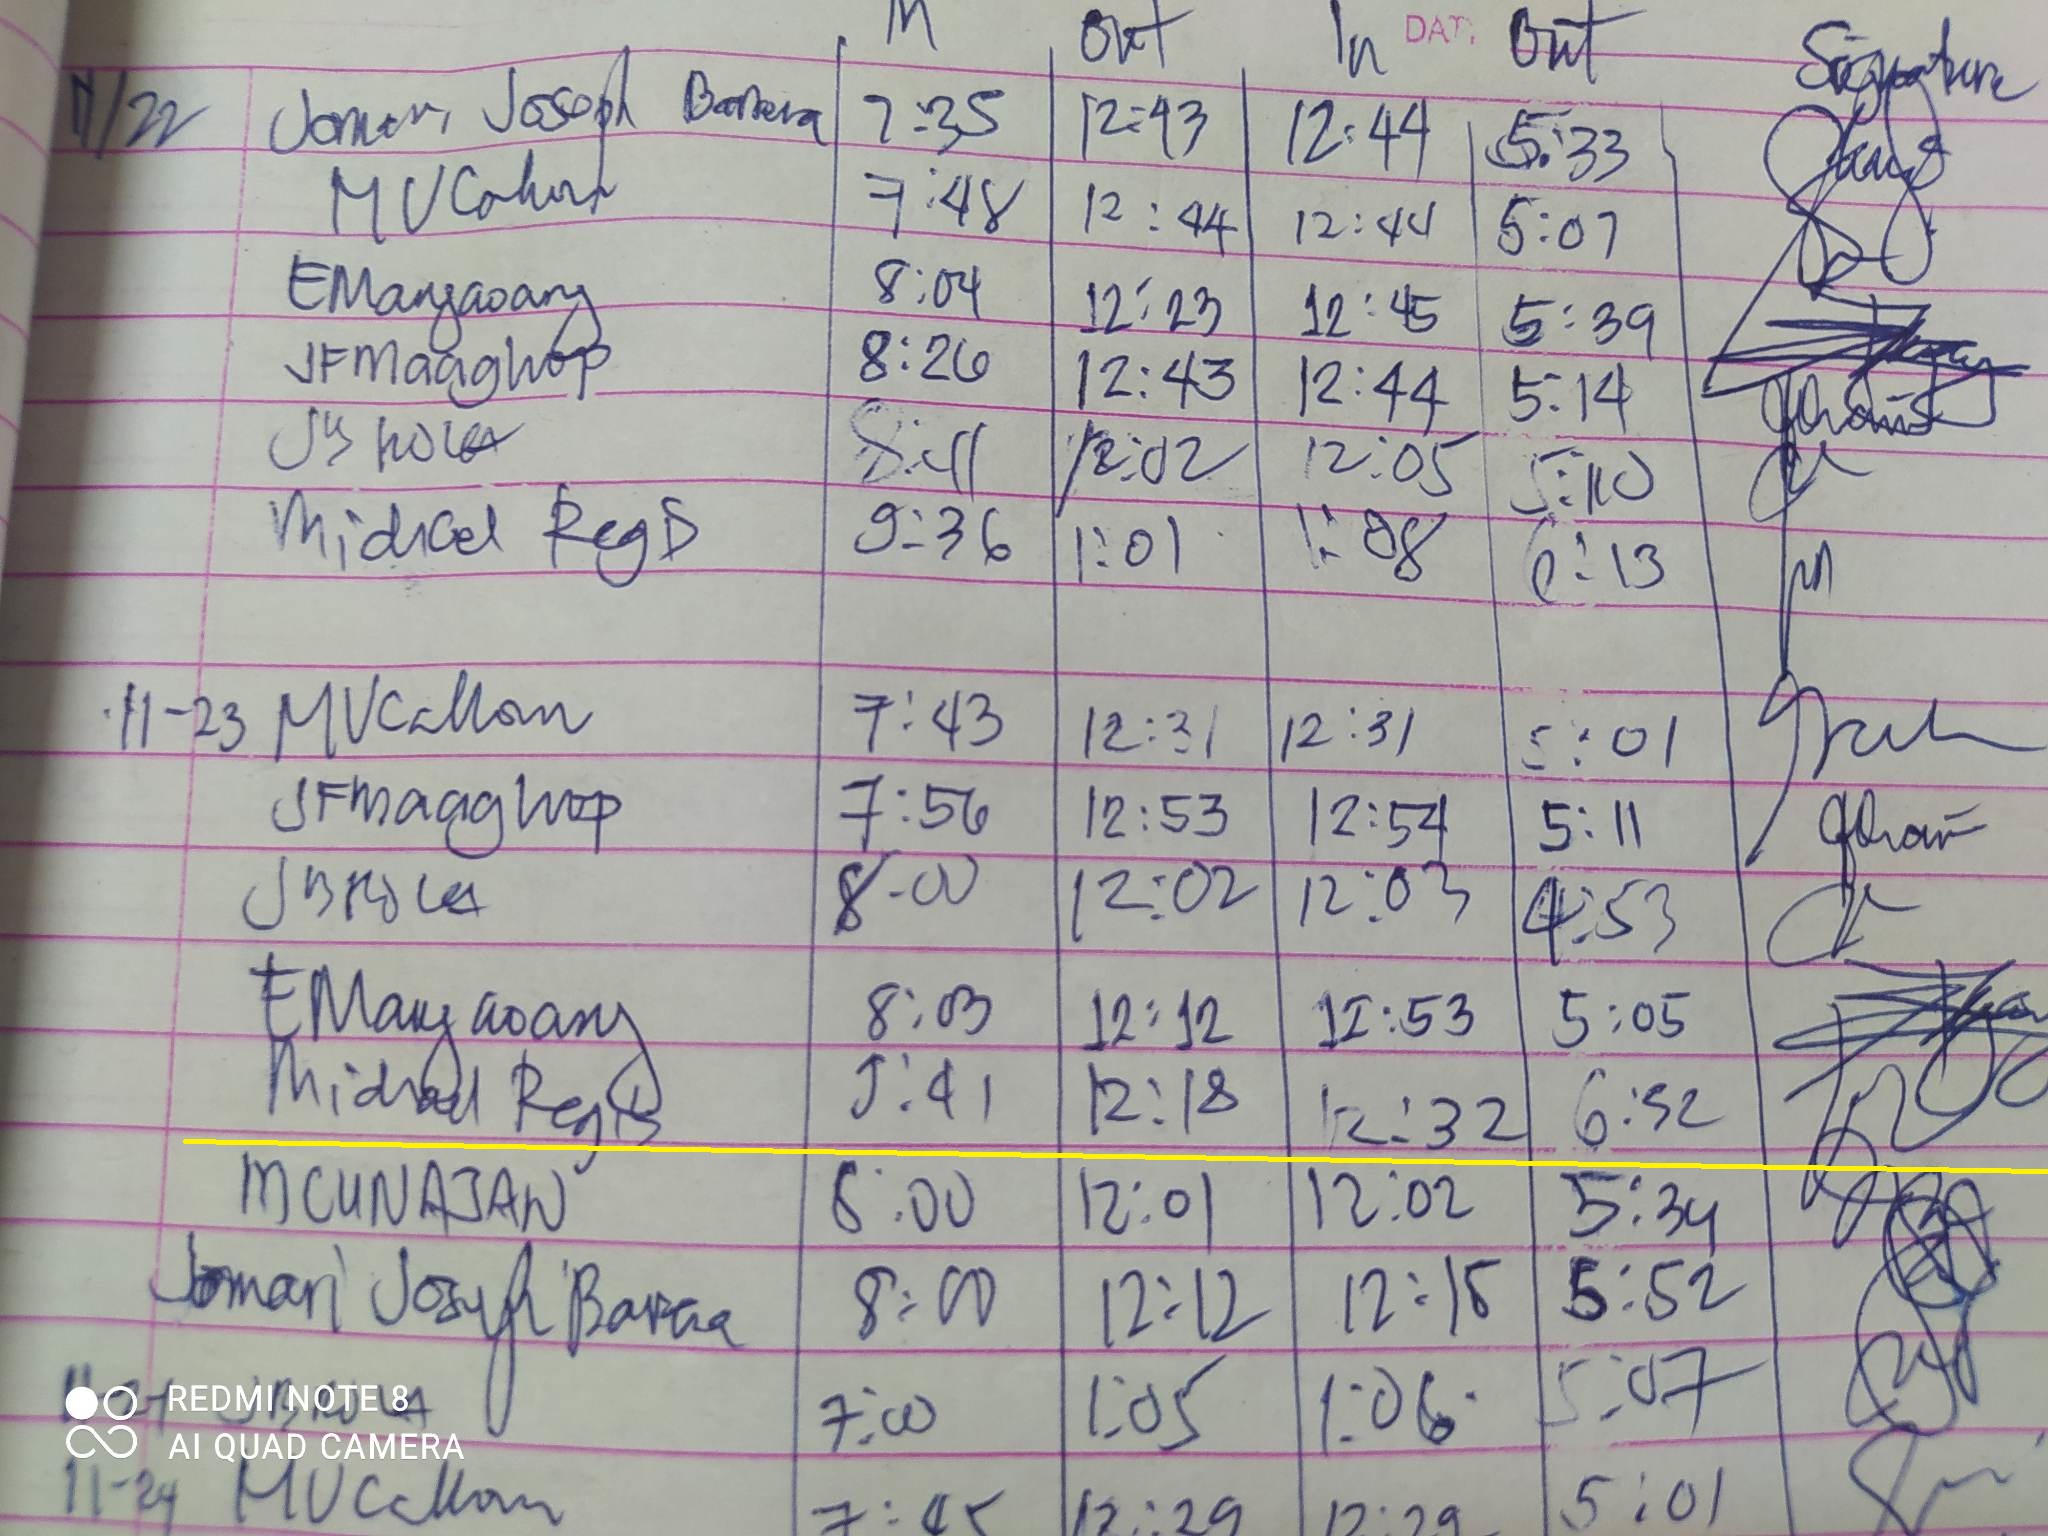 In Out In DATE Out Signature
11/22 Jomari Joseph Barrera 7:35 12:43 12:44 5:33
7:48 12:44 12:44 5:07
EMangaoang 8:04 12:23 12:45 5:39
JFMaaghop 8:26 12:43 12:44 5:14
JBROLA 12:02 12:05 5:10
Michael Regis 9:36 1:01 1:08 6:13
11-23 MVCallon 7:43 12:31 12:31 5:01
JFMaaghop 7:56 12:53 12:54 5:11
JBROLA 8:00 12:02 12:03 4:53
EMangaoang 8:03 12:12 12:53 5:05
Michael Regis 9:41 12:18 12:32 6:32
MCUNAJAN 8:00 12:01 12:02 5:34
Jomari Joseph Barrera 8:00 12:12 12:15 5:52
JBROLA 7:00 1:05 1:06 5:07
11-24 MVCallon 7:45 12:29 12:29 5:01
REDMI NOTE 8
AI QUAD CAMERA